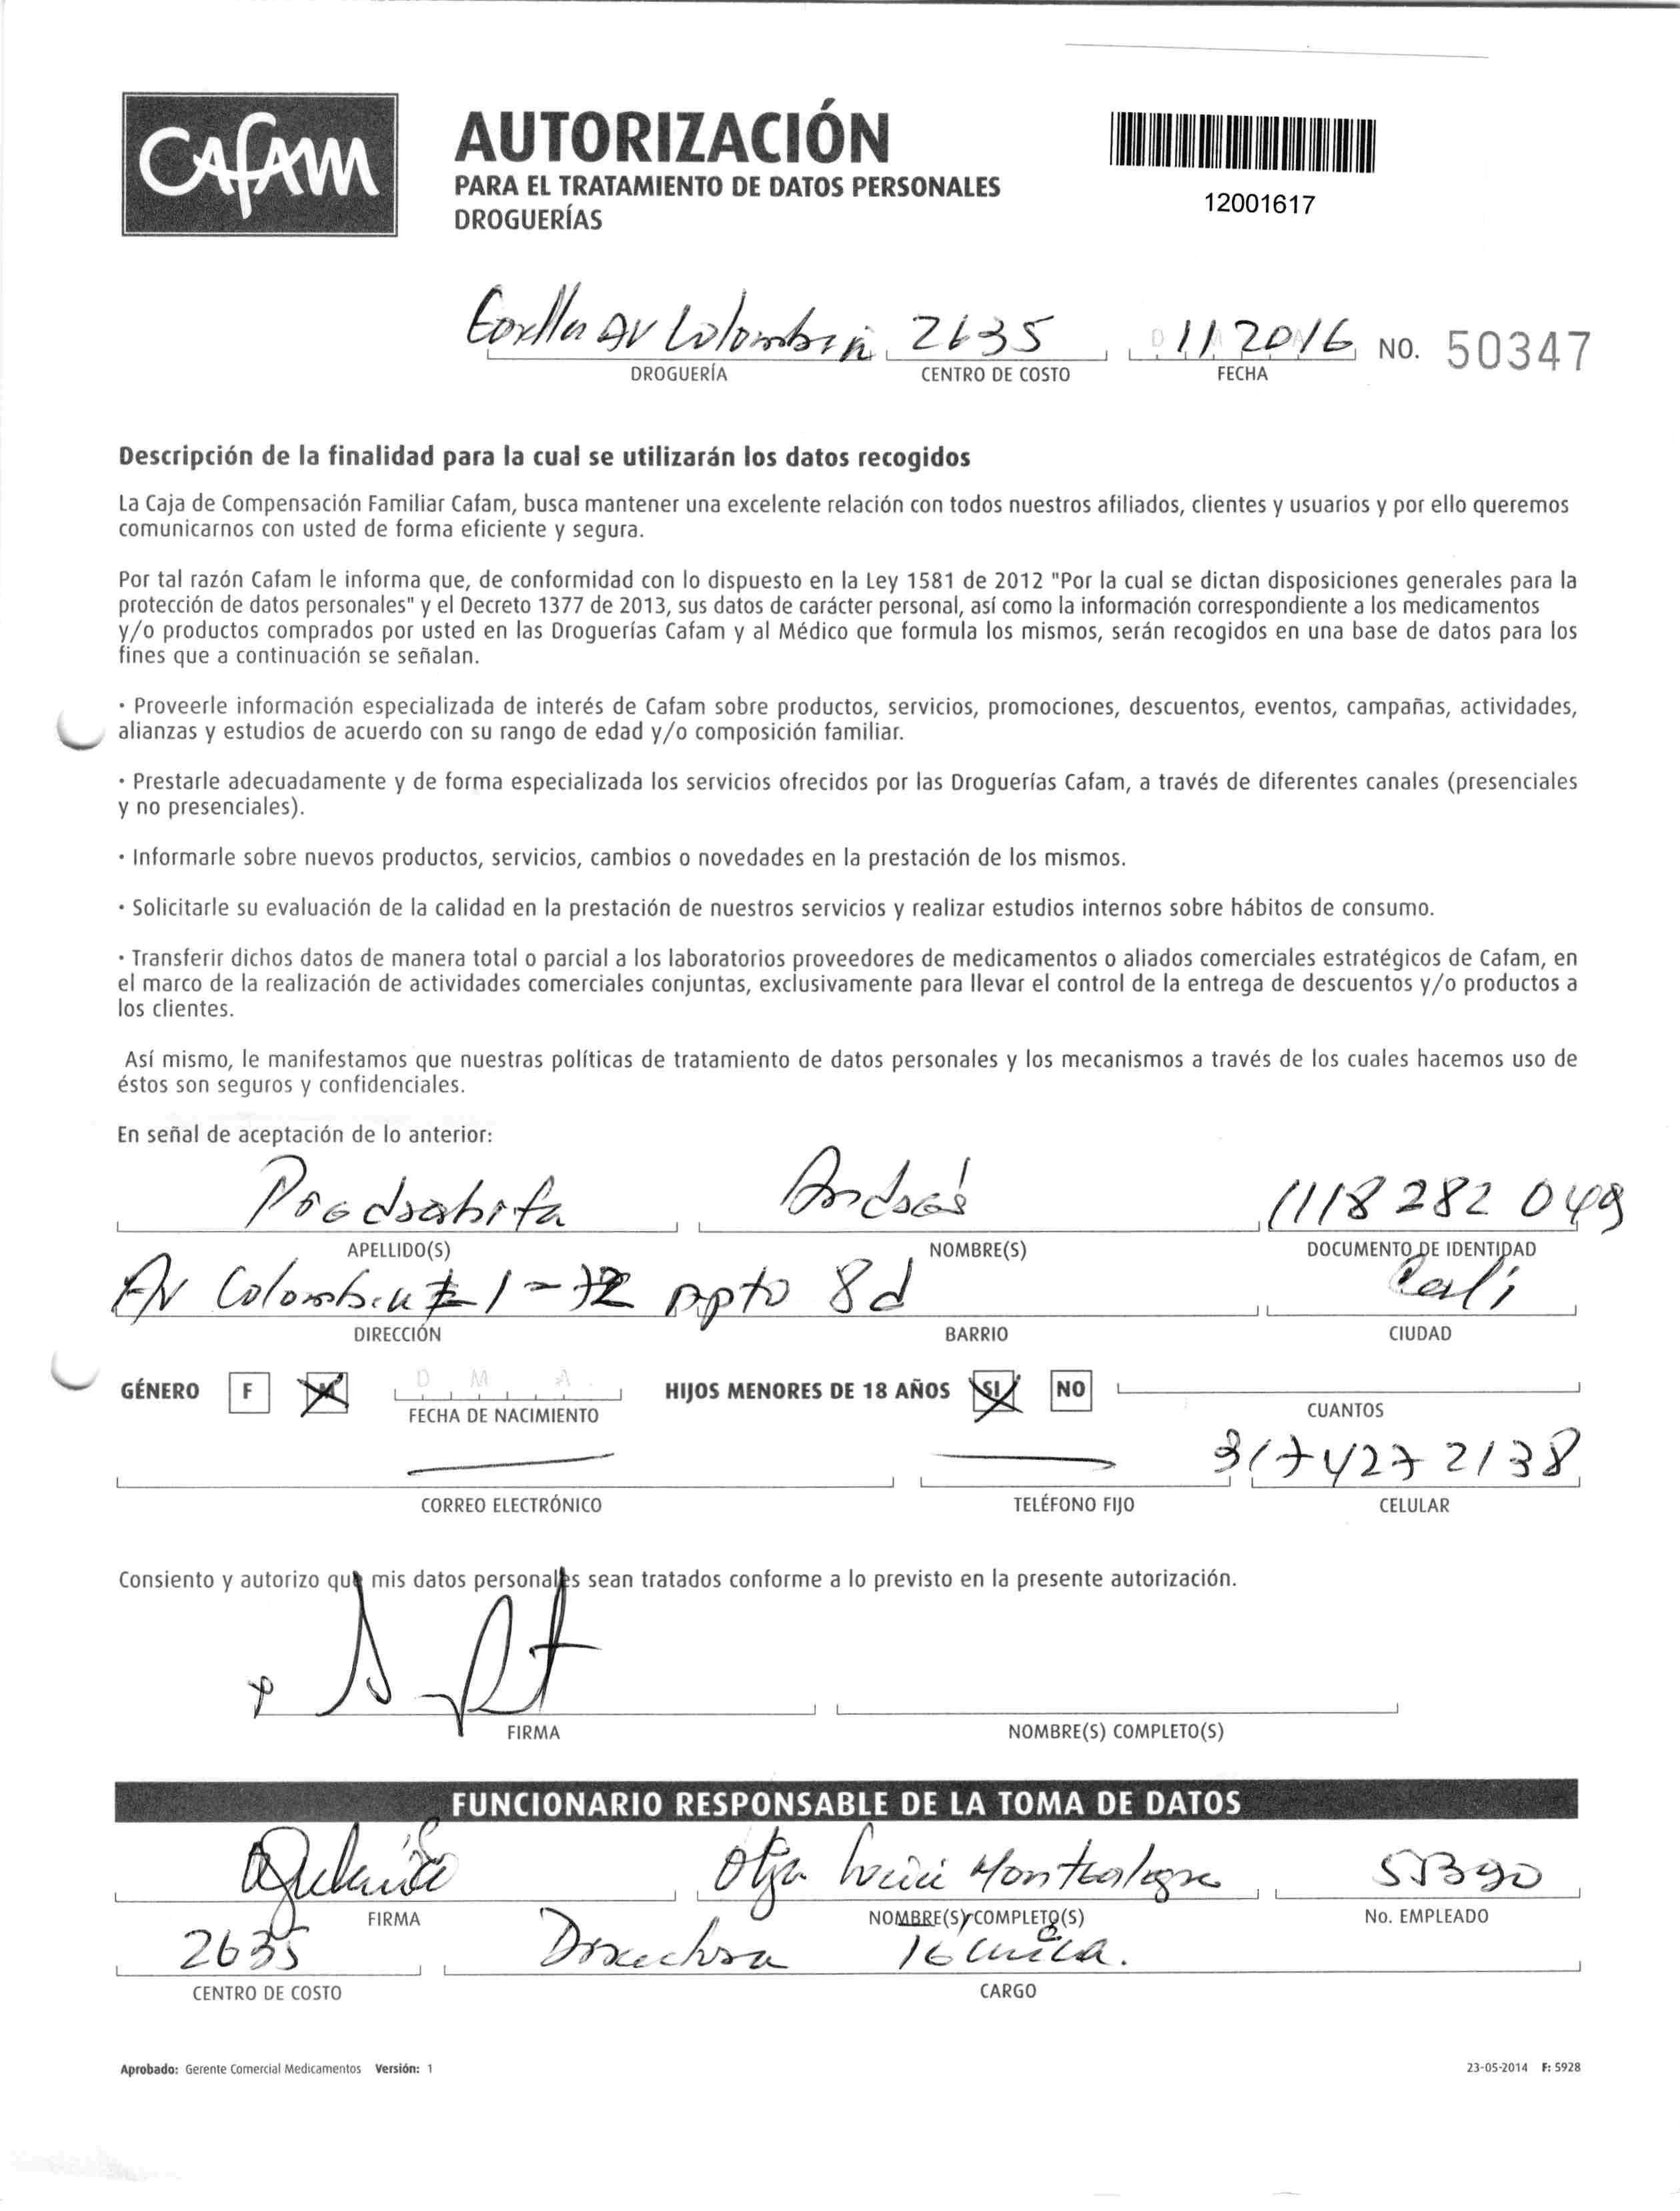 CAFAM
AUTORIZACIÓN
PARA EL TRATAMIENTO DE DATOS PERSONALES
DROGUERÍAS
12001617
AV Colombia 2635 11 2016 NO. 50347
DROGUERÍA CENTRO DE COSTO FECHA
Descripción de la finalidad para la cual se utilizarán los datos recogidos
La Caja de Compensación Familiar Cafam, busca mantener una excelente relación con todos nuestros afiliados, clientes y usuarios y por ello queremos
comunicarnos con usted de forma eficiente y segura.
Por tal razón Cafam le informa que, de conformidad con lo dispuesto en la Ley 1581 de 2012 "Por la cual se dictan disposiciones generales para la
protección de datos personales" y el Decreto 1377 de 2013, sus datos de carácter personal, así como la información correspondiente a los medicamentos
y/o productos comprados por usted en las Droguerías Cafam y al Médico que formula los mismos, serán recogidos en una base de datos para los
fines que a continuación se señalan.
· Proveerle información especializada de interés de Cafam sobre productos, servicios, promociones, descuentos, eventos, campañas, actividades,
alianzas y estudios de acuerdo con su rango de edad y/o composición familiar.
· Prestarle adecuadamente y de forma especializada los servicios ofrecidos por las Droguerías Cafam, a través de diferentes canales (presenciales
y no presenciales).
· Informarle sobre nuevos productos, servicios, cambios o novedades en la prestación de los mismos.
· Solicitarle su evaluación de la calidad en la prestación de nuestros servicios y realizar estudios internos sobre hábitos de consumo.
· Transferir dichos datos de manera total o parcial a los laboratorios proveedores de medicamentos o aliados comerciales estratégicos de Cafam, en
el marco de la realización de actividades comerciales conjuntas, exclusivamente para llevar el control de la entrega de descuentos y/o productos a
los clientes.
Así mismo, le manifestamos que nuestras políticas de tratamiento de datos personales y los mecanismos a través de los cuales hacemos uso de
éstos son seguros y confidenciales.
En señal de aceptación de lo anterior:
Piedrahita Andrés 1118 282 049
APELLIDO(S) NOMBRE(S) DOCUMENTO DE IDENTIDAD
AV Colombia # 1-72 Apto 8d Cali
DIRECCIÓN BARRIO CIUDAD
GÉNERO F M D M A HIJOS MENORES DE 18 AÑOS SI NO
FECHA DE NACIMIENTO CUANTOS
317 427 2138
CORREO ELECTRÓNICO TELÉFONO FIJO CELULAR
Consiento y autorizo que mis datos personales sean tratados conforme a lo previsto en la presente autorización.
FIRMA NOMBRE(S) COMPLETO(S)
FUNCIONARIO RESPONSABLE DE LA TOMA DE DATOS
Olga Lucia Montealegre 51390
FIRMA NOMBRE(S) COMPLETO(S) No. EMPLEADO
2635 Directora Técnica.
CENTRO DE COSTO CARGO
Aprobado: Gerente Comercial Medicamentos Versión: 1 23-05-2014 F: 5928